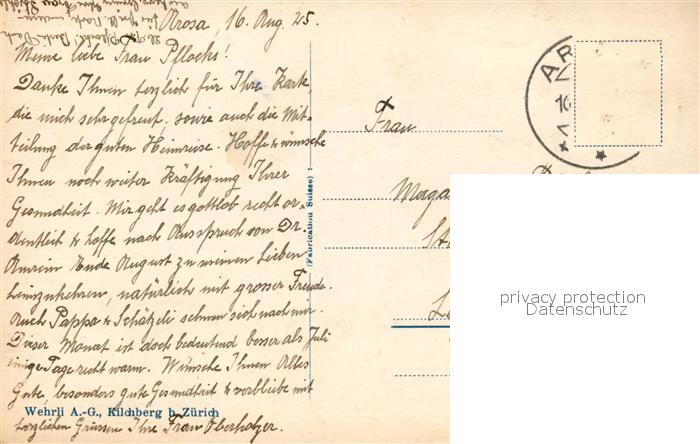 Arosa, 16. Aug. 25.
Meine liebe Frau Pflocks!
Danke Ihnen herzlich für Ihre Karte,
die mich sehr gefreut. sowie auch die Mit-
teilung der guten Heimreise. Hoffe & wünsche
Ihnen noch weiter Kräftigung Ihrer
Gesundheit. Mir geht es gottlob recht or-
dentlich & hoffe nach Ausspruch von Dr.
Amrein Ende August zu meinen Lieben
heimzukehren, natürlich mit grosser Freude.
Auch Pappa & Schätzeli sehnen sich nach mir.
Dieser Monat ist doch bedeutend besser als Juli
einige Tage recht warm. Wünsche Ihnen Alles
Gute, besonders gute Gesundheit & verbleibe mit
herzlichen Grüssen Ihre Frau Oberholzer.
Wehrli A.-G., Kilchberg b. Zürich
(Fabrication Suisse)
AR
Frau
privacy protection
Datenschutz